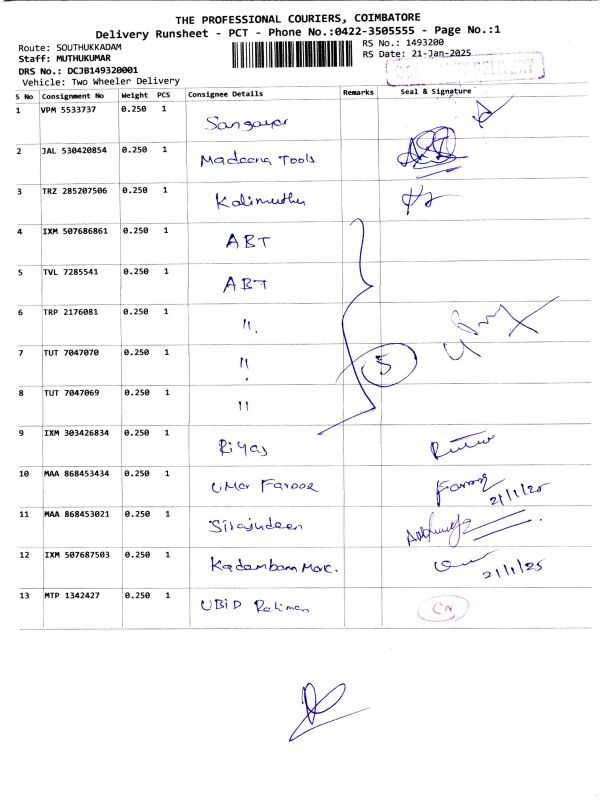 THE PROFESSIONAL COURIERS, COIMBATORE
Delivery Runsheet - PCT - Phone No.:0422-3505555 - Page No.:1
Route: SOUTHUKKADAM RS No.: 1493200
Staff: MUTHUKUMAR RS Date: 21-Jan-2025
DRS No.: DCJB149320001
Vehicle: Two Wheeler Delivery
S No Consignment No Weight PCS Consignee Details Remarks Seal & Signature
1 VPM 5533737 0.250 1
2 JAL 530420854 0.250 1 Madeena Tools
3 TRZ 285207506 0.250 1 Kalimuthu
4 IXM 507686861 0.250 1 ABT
5 TVL 7285541 0.250 1 ABT
6 TRP 2176081 0.250 1 "
7 TUT 7047070 0.250 1 " 5
8 TUT 7047069 0.250 1 "
9 IXM 303426834 0.250 1 Riyas
10 MAA 868453434 0.250 1 Umar Farook Farooq 21/1/25
11 MAA 868453021 0.250 1 Sirajudeen
12 IXM 507687503 0.250 1 Kadambam 21/1/25
13 MTP 1342427 0.250 1 UBID Rahman CN